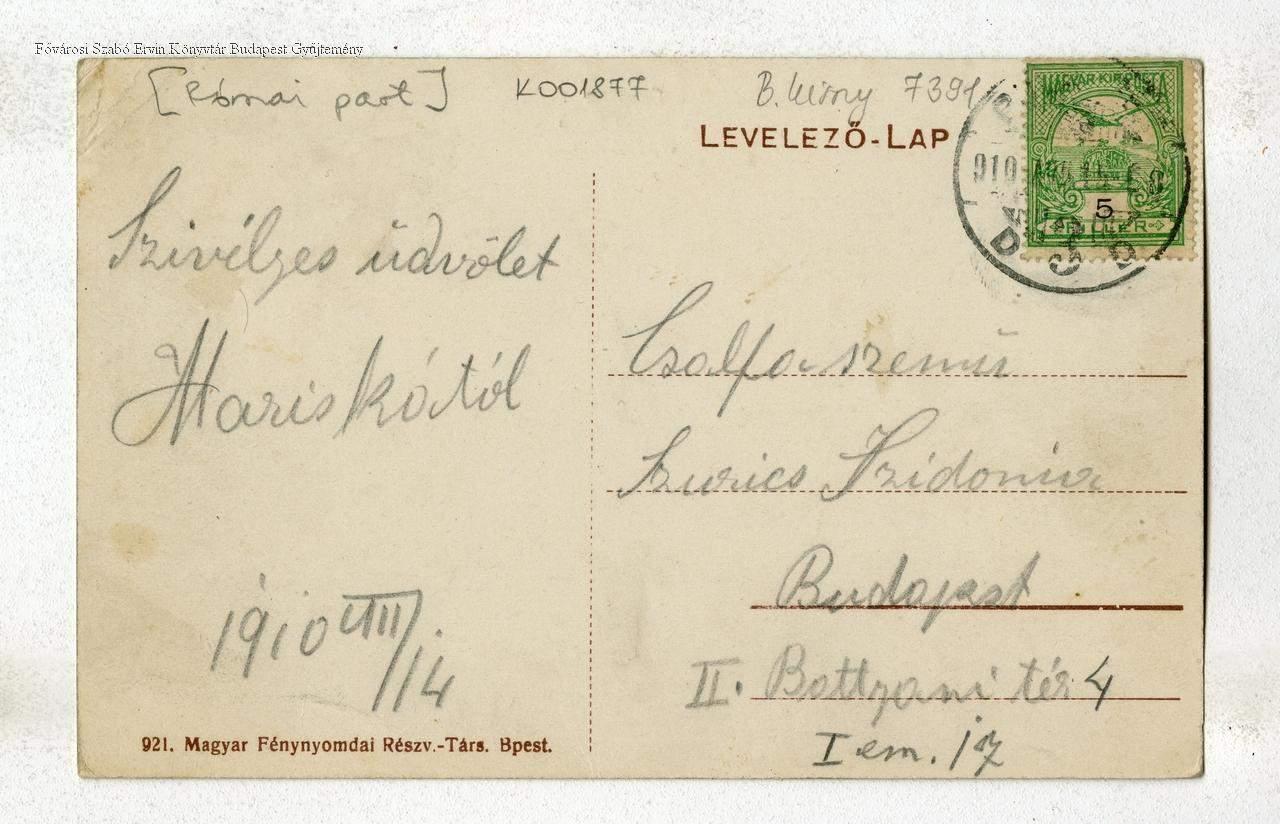 Fővárosi Szabó Ervin Könyvtár Budapest Gyűjtemény
[Római part] K001877 7391
LEVELEZŐ-LAP
MAGYAR KIR. POSTA
5
FILLÉR
910
Szivélyes üdvölet
Mariskától
1910 VIII/14
Csalfa szemü
Szurics Szidonia
Budapest
II. Battyani tér 4
I em. 17
921. Magyar Fénynyomdai Részv.-Társ. Bpest.